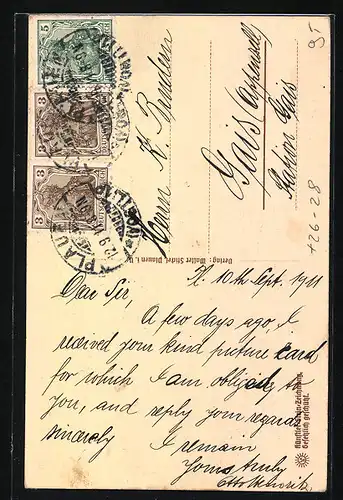 5
3
3
PLAUEN
Herrn K. Bruderer
Gais (Appenzell)
Station Gais
726-28
Verlag: Walter Stirl, Plauen i. V.
Pl. 10th Sept. 1911
Dear Sir,
A few days ago, I
received your kind picture card
for which I am obliged to
you, and reply your regards
sincerely
I remain
Yours truly
Otto
Gesetzlich geschützt.